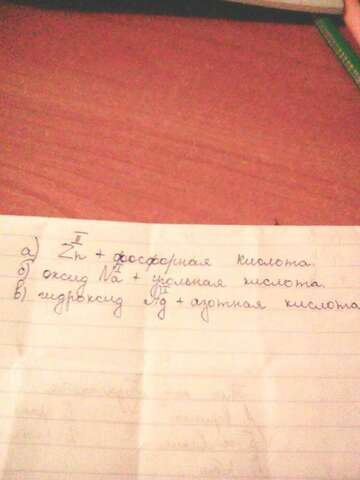 а) Zn II + фосфорная кислота.
б) оксид Na I + угольная кислота.
в) гидроксид + азотная кислота